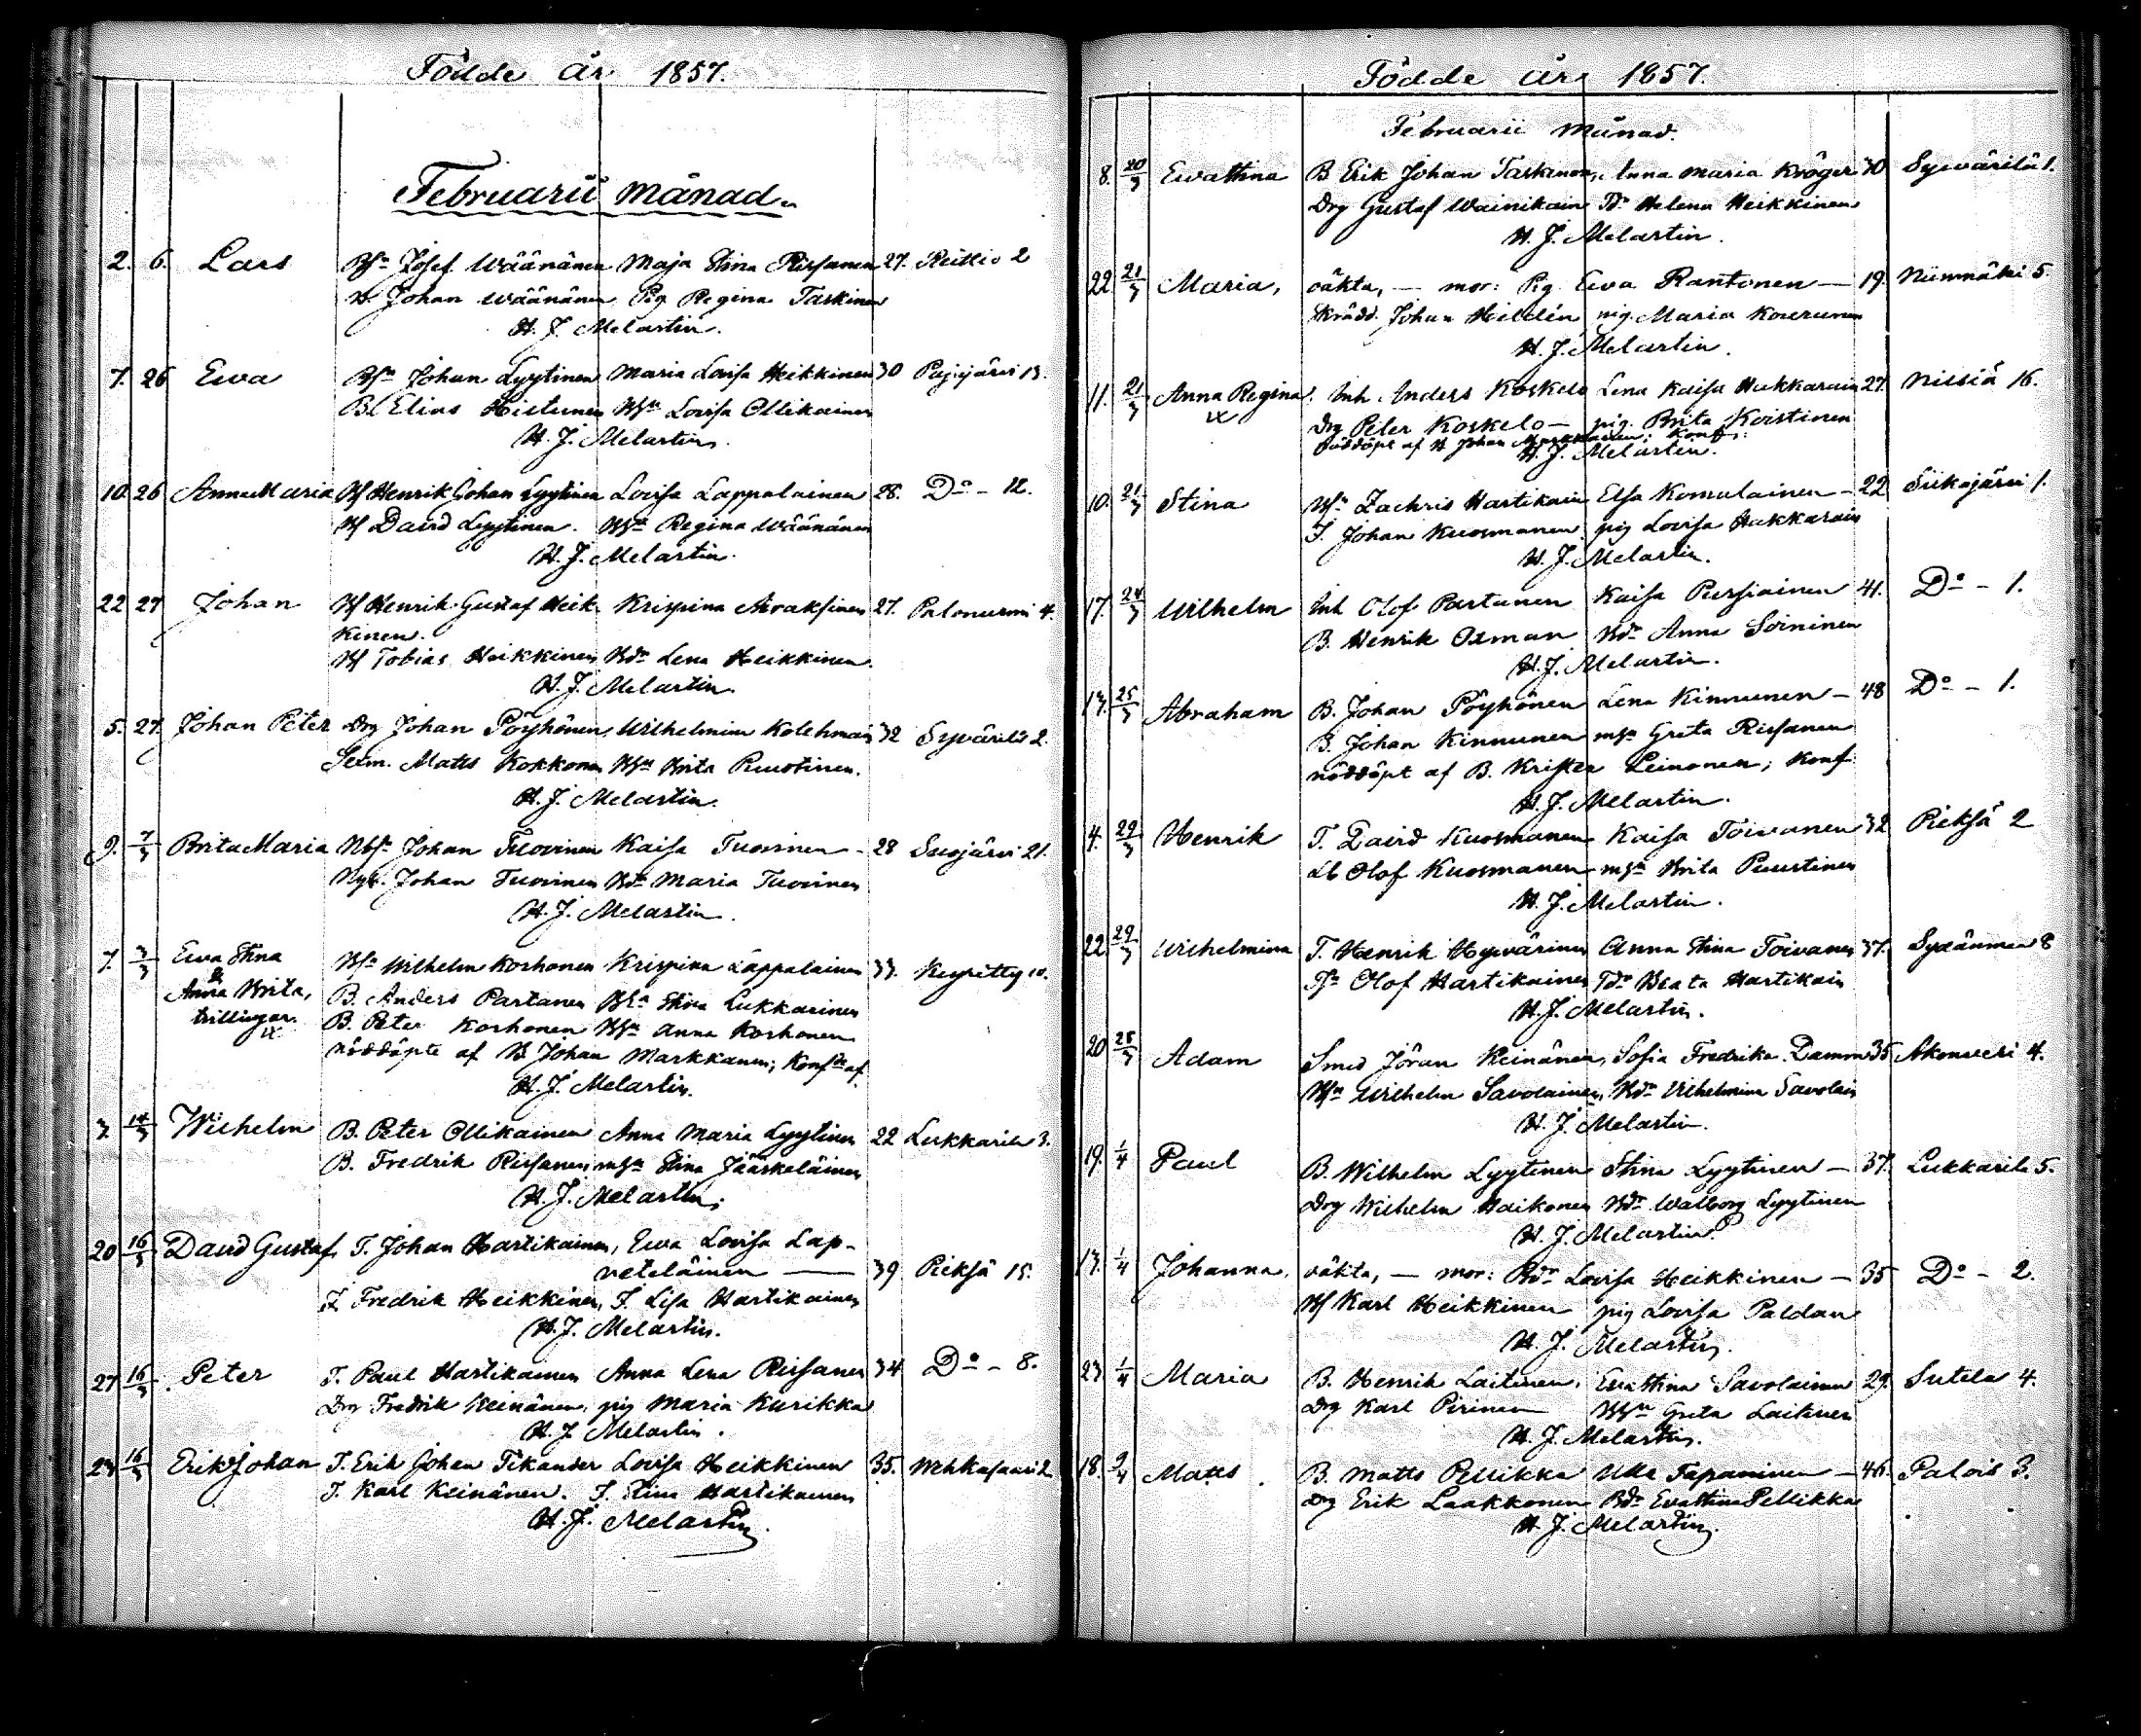 Födde år 1857.
Februarii månad.
2. 6. Lars Bsn Josef Wäänänen Maja Stina Rissanen 27. Reittio 2
B. Johan Wäänänen Pig Regina Taskinen
H. J. Melartin.
7. 26 Ewa Bsn Johan Lyytinen Maria Lovisa Heikkinen 30 Pajujärvi 13.
B Elias Histunen Hsn Lovisa Ollikainen
H. J. Melartin.
10. 26 Anna Maria Bf Henrik Johan Lyytinen Lovisa Lappalainen 28. Do - 12.
Bf David Lyytinen. Regina Wäänänen
H. J. Melartin.
22 27 Johan Bf Henrik Gustaf Heik- Krispina Airaksinen 27. Palonurmi 4.
kinen.
Bf Tobias Heikkinen Bdr Lena Heikkinen.
H. J. Melartin.
5. 27. Johan Peter Drg Johan Pöyhönen, Wilhelmina Kolehmain 32 Sywärilä 2.
Matts Kokkonen Brita Ruustinen.
H. J. Melartin.
9. 7/3 Brita Maria Johan Tuovinen Kaisa Tuovinen - 28 Suojärvi 21.
Johan Tuovinen Bdr Maria Tuovinen
H. J. Melartin.
7. 3/3 Ewa Stina Wilhelm Korhonen Krispina Lappalainen 33. Keyritty 10.
& Anna Brita, B. Anders Partanen Stina Lukkarinen
trillingar. B. Peter Korhonen Anna Korhonen
nöddöpte af B Johan Markkanen; Konfde af
H. J. Melartin.
3. 14/3 Wilhelm B. Peter Ollikainen Anna Maria Lyytinen 22 Lukkarila 3.
B. Fredrik Rissanen, Stina Jääskeläinen
H. J. Melartin.
20 16/3 David Gustaf, T. Johan Hartikainen, Ewa Lovisa Lap-
veteläinen — 39 Pieksä 15.
T Fredrik Heikkinen, T. Lisa Hartikainen
H. J. Melartin.
27 16/3 Peter T. Paul Hartikainen Anna Lena Rissanen 34 Do - 8.
Drg Fredrik Keinänen, pig Maria Kurikka
H. J. Melartin.
23 16/3 Erik Johan T. Erik Johan Tikander Lovisa Heikkinen 35. Wehkasaari 2
T. Karl Keinänen. T. Stina Hartikainen
H. J. Melartin.
Födde år 1857.
Februarii månad.
8. 20/3 Ewastina B Erik Johan Taskinen, Anna Maria Kröger 30 Sywärilä 1.
Drg Gustaf Wainikain Tdr Helena Heikkinen
H. J. Melartin.
22 21/3 Maria, oäkta, — mor: Pig. Ewa Rantonen — 19. Niinimäki 5.
Skrädd. Johan Hildén pig. Maria Kourunen
H. J. Melartin.
11. 21/3 Anna Regina. Inh Anders Koskelo Lena Kaisa Hakkarain 27. Nilsiä 16.
Drg Peter Koskelo — pig. Brita Koistinen
nöddöpt af B Johan Markkanen; Konf:
H. J. Melartin.
10. 21/3 Stina Zachris Hartikain Elsa Komulainen - 22 Siikajärvi 1.
T. Johan Kuosmanen pig Lovisa Hakkarain
H. J. Melartin.
17. 24/3 Wilhelm Inh Olof Partanen Kaisa Pursiainen 41. Do - 1.
B. Henrik Oxman Bdr Anna Soininen
H. J. Melartin.
13. 25/3 Abraham B. Johan Pöyhönen Lena Kinnunen - 48 Do - 1.
B. Johan Kinnunen Greta Rissanen
nöddöpt af B. Krister Leinonen; Konf:
H. J. Melartin.
4. 29/3 Henrik T. David Kuosmanen Kaisa Toivanen 32 Pieksä 2
Olof Kuosmanen Brita Puustinen
H. J. Melartin.
22. 29/3 Wilhelmina T. Henrik Hyvärinen Anna Stina Toivanen 37. Sydänmaa 8
Tsn Olof Hartikainen Tdr Beata Hartikain
H. J. Melartin.
20 28/3 Adam Smed Jöran Keinänen, Sofia Fredrika Damm 35 Akonvesi 4.
Wilhelm Savolainen, Bdr Wilhelmina Savolain
H. J. Melartin.
19. 1/4 Paul B. Wilhelm Lyytinen Stina Lyytinen — 37. Lukkarila 5.
Drg Wilhelm Haikonen Bdr Walborg Lyytinen
H. J. Melartin.
13. 1/4 Johanna, oäkta, — mor: Bdr Lovisa Heikkinen — 35 Do - 2.
Bf Karl Heikkinen pig Lovisa Paldan
H. J. Melartin.
23. 1/4 Maria B. Henrik Laitinen, Ewastina Savolainen 29. Sutela 4.
Drg Karl Pirinen Greta Laitinen
H. J. Melartin.
18. 9/4 Matts. B. Matts Pellikka Ulla Tapaninen — 46. Palois 3.
Drg Erik Laakkonen Bdr Ewastina Pellikka
H. J. Melartin.